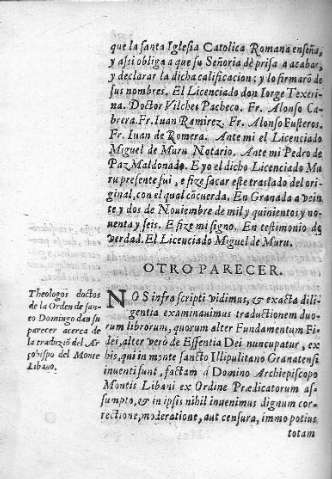 que la santa Iglesia Catolica Romana enseña,
y assi obliga a que su Señoria dè prisa a acabar,
y declarar la dicha calificacion; y lo firmarõ de
sus nombres. El Licenciado don Iorge Texerina.
Doctor Vilches Pacheco. Fr. Alonso Cabrera.
Fr. Iuan Ramirez. Fr. Alonso Fusteros.
Fr. Iuan de Romera. Ante mi el Licenciado
Miguel de Muru Notario. Ante mi Pedro de
Paz Maldonado. E yo el dicho Licenciado Muru
presente fui, e fize sacar este traslado del original,
con el qual cõcuerda. En Granada a veinte
y dos de Noviembre de mil y quinientos y noventa
y seis. E fize mi signo. En testimonio de
verdad. El Licenciado Miguel de Muru.
OTRO PARECER.
Theologos doctos
de la Orden de santo
Domingo dan su
parecer acerca de
la traduziõ del Arçobispo
del Monte
Libano.
NOS infra scripti vidimus, & exacta diligentia
examinauimus traductionem duorum
librorum, quorum alter Fundamentum Fidei,
alter verò de Essentia Dei nuncupatur, ex
bis, qui in monte sancto Illipulitano Granatensi
inuenti sunt, factam à Domino Archiepiscopo
Montis Libani ex Ordine Prædicatorum assumpto,
& in ipsis nihil inuenimus dignum correctione,
moderatione, aut censura, immo potius
totam